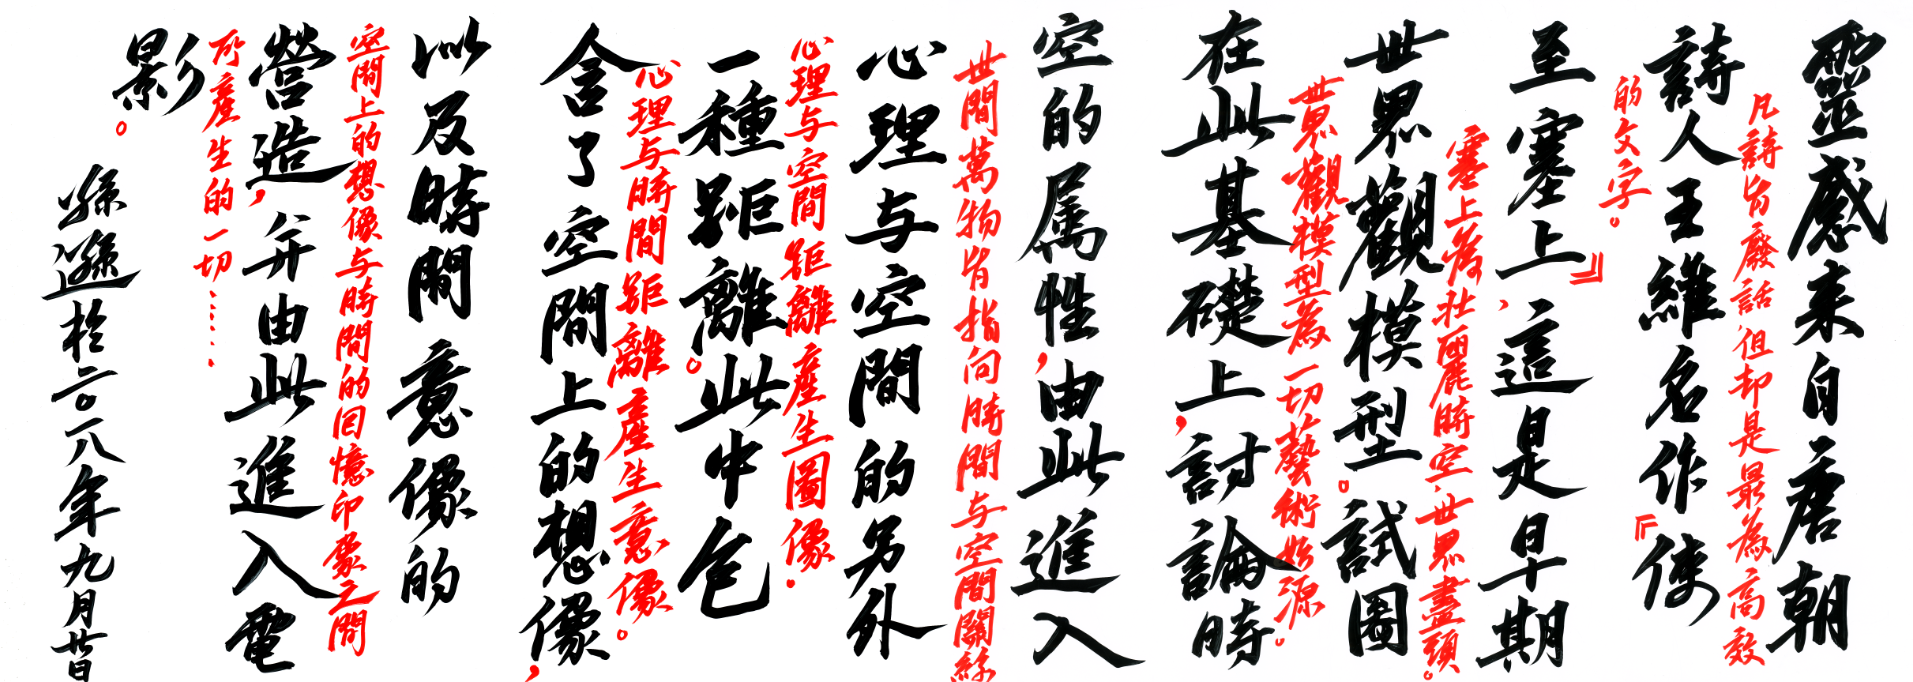 靈感来自唐朝
凡詩皆廢話,但却是最為高效
詩人王維名作『使
的文字。
至塞上』,這是早期
塞上為壯麗時空,世界盡頭。
世界觀模型。試圖
世界觀模型為一切藝術始源。
在此基礎上,討論時
空的属性,由此進入
世間萬物皆指向時間与空間關係
心理与空間的另外
心理与空間距離產生圖像.
一種距離。此中包
心理与時間距離產生意像。
含了空間上的想像,
以及時間意像的
空間上的想像与時間的回憶印象之間
營造,并由此進入電
所產生的一切……
影。
孫遜於二〇一八年九月廿日